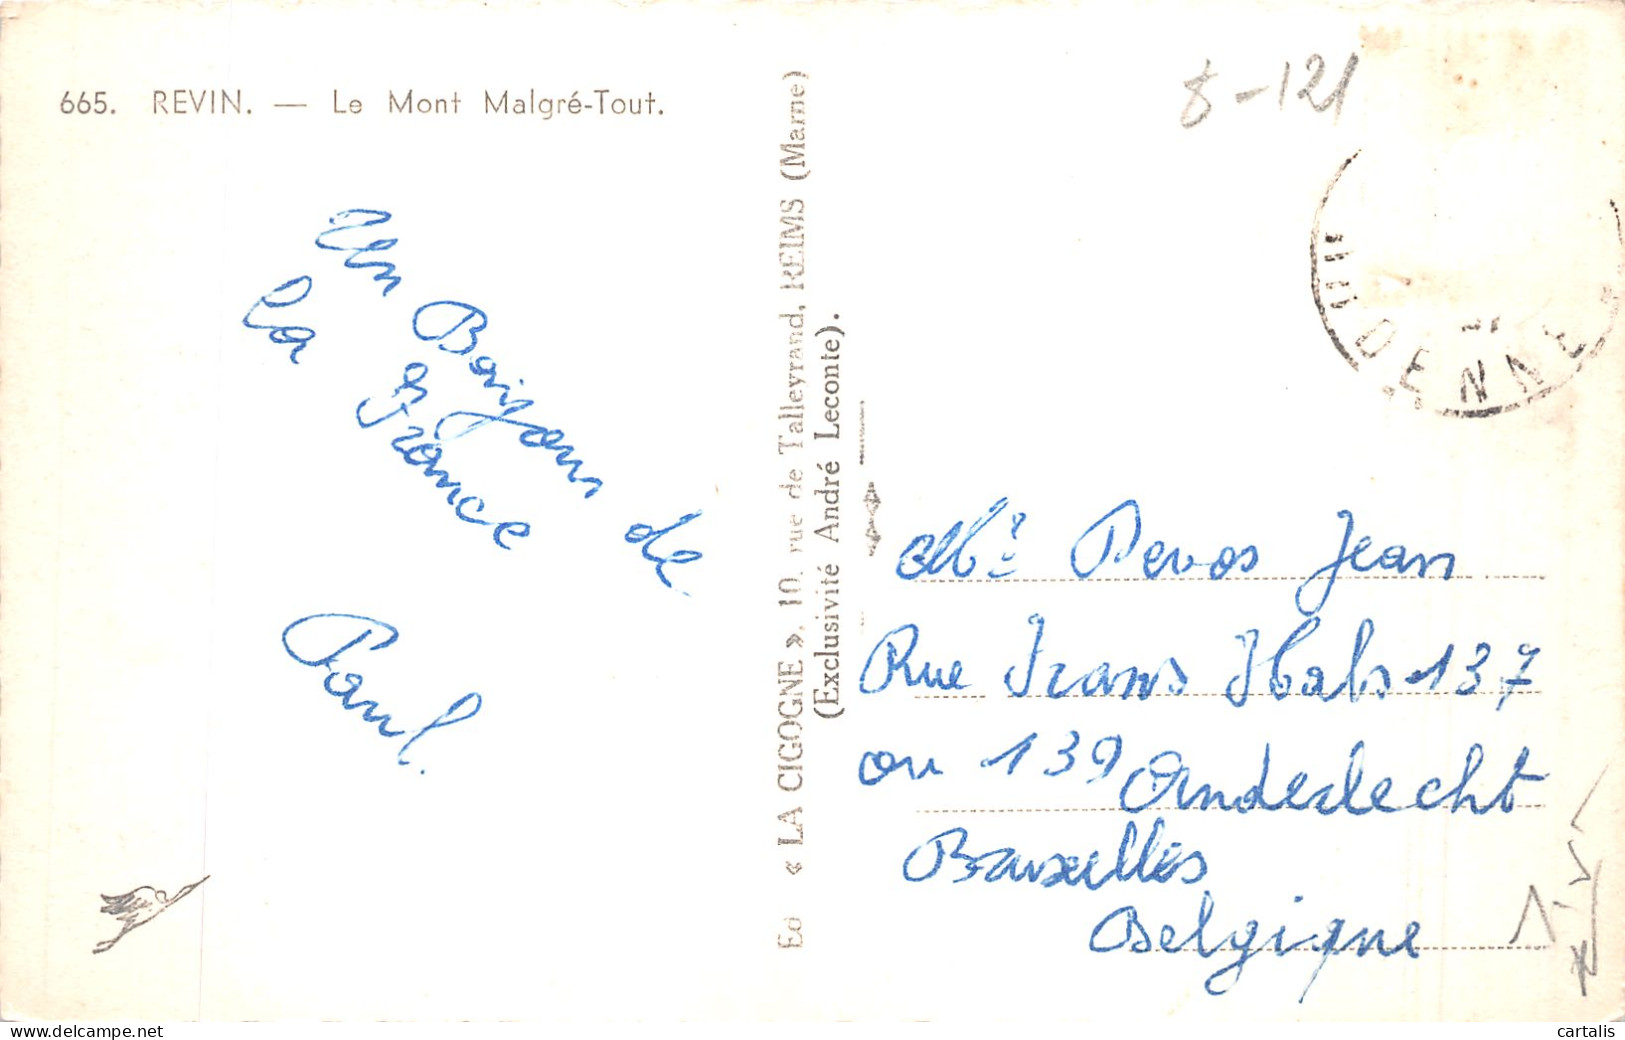 665. REVIN. — Le Mont Malgré-Tout.
8-121
Un Bonjour de
la France
Paul.
Ed « LA CIGOGNE », 10, rue de Talleyrand, REIMS (Marne)
(Exclusivité André Leconte).
DENNE
Mr Devos Jean
Rue Frans Hals 137
ou 139 Anderlecht
Bruxelles
Belgique
www.delcampe.net
cartalis